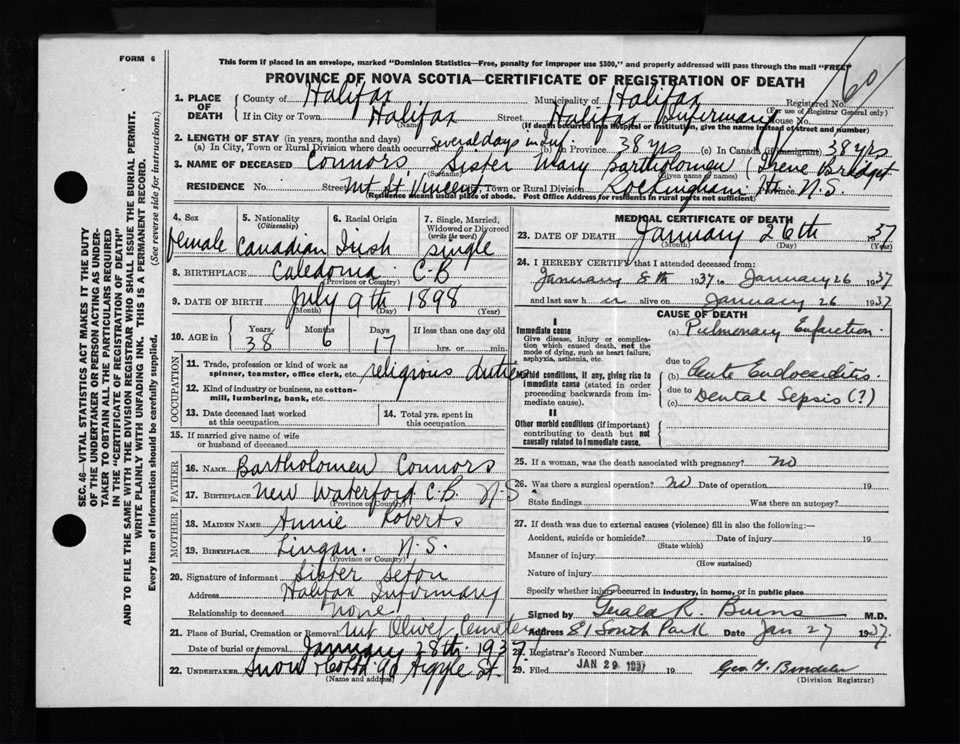 FORM 6
This form if placed in an envelope, marked "Dominion Statistics—Free, penalty for improper use $300," and properly addressed will pass through the mail "FREE"
PROVINCE OF NOVA SCOTIA—CERTIFICATE OF REGISTRATION OF DEATH
60
1. PLACE OF DEATH
County of Halifax Municipality of Halifax Registered No.
(For use of Registrar General only)
If in City or Town Halifax Street Halifax Infirmary House No.
(Name) (If death occurred in a hospital or institution, give the name instead of street and number)
2. LENGTH OF STAY (in years, months and days)
(a) In City, Town or Rural Division where death occurred Several days in Inf (b) In Province 38 yrs (c) In Canada (if immigrant) 38 yrs
3. NAME OF DECEASED Connors, Sister Mary Bartholomew (Irene Bridget
(Surname) (Given name or names)
RESIDENCE No. Street Mt St. Vincent, Town or Rural Division Rockingham Province N.S.
(Residence means usual place of abode. Post Office Address for residents in rural parts not sufficient)
4. Sex female
5. Nationality (Citizenship) Canadian
6. Racial Origin Irish
7. Single, Married, Widowed or Divorced (write the word) single
8. BIRTHPLACE Caledonia C.B
(Province or Country)
9. DATE OF BIRTH July 9th 1898
(Month) (Day) (Year)
10. AGE in Years 38 Months 6 Days 17 If less than one day old hrs. or min.
OCCUPATION
11. Trade, profession or kind of work as spinner, teamster, office clerk, etc. religious duties
12. Kind of industry or business, as cotton-mill, lumbering, bank, etc.
13. Date deceased last worked at this occupation
14. Total yrs. spent in this occupation
15. If married give name of wife or husband of deceased
FATHER
16. NAME Bartholomew Connors
17. BIRTHPLACE New Waterford C.B. N.S.
MOTHER
18. MAIDEN NAME Annie Roberts
19. BIRTHPLACE Lingan. N.S.
(Province or Country)
20. Signature of informant Sister Seton
Address Halifax Infirmary
Relationship to deceased none
21. Place of Burial, Cremation or Removal Mt Olivet Cemetery
Date of burial or removal January 28th 1937
22. UNDERTAKER Snow & Co Ltd 90 Argyle St.
(Name and address)
MEDICAL CERTIFICATE OF DEATH
23. DATE OF DEATH January 26th 1937
(Month) (Day) (Year)
24. I HEREBY CERTIFY that I attended deceased from:
January 8th 1937 to January 26 1937
and last saw h er alive on January 26 1937
CAUSE OF DEATH
I
Immediate cause
Give disease, injury or complication which caused death, not the mode of dying, such as heart failure, asphyxia, asthenia, etc.
(a) Pulmonary Infarction.
due to
Morbid conditions, if any, giving rise to immediate cause (stated in order proceeding backwards from immediate cause).
(b) Acute Endocarditis.
due to
(c) Dental Sepsis (?)
II
Other morbid conditions (if important) contributing to death but not causally related to immediate cause.
25. If a woman, was the death associated with pregnancy? No
26. Was there a surgical operation? No Date of operation 19
State findings Was there an autopsy?
27. If death was due to external causes (violence) fill in also the following:—
Accident, suicide or homicide? Date of injury 19
(State which)
Manner of injury
(How sustained)
Nature of injury
Specify whether injury occurred in industry, in home, or in public place
Signed by Gerald R. Burns M.D.
Address 81 South Park Date Jan 27 1937.
28. Registrar's Record Number
29. Filed JAN 29 1937 19
(Division Registrar)
SEC. 46—VITAL STATISTICS ACT MAKES IT THE DUTY
OF THE UNDERTAKER OR PERSON ACTING AS UNDER-
TAKER TO OBTAIN ALL THE PARTICULARS REQUIRED
IN THE "CERTIFICATE OF REGISTRATION OF DEATH"
AND TO FILE THE SAME WITH THE DIVISION REGISTRAR WHO SHALL ISSUE THE BURIAL PERMIT.
WRITE PLAINLY WITH UNFADING INK. THIS IS A PERMANENT RECORD.
Every item of information should be carefully supplied. (See reverse side for instructions.)